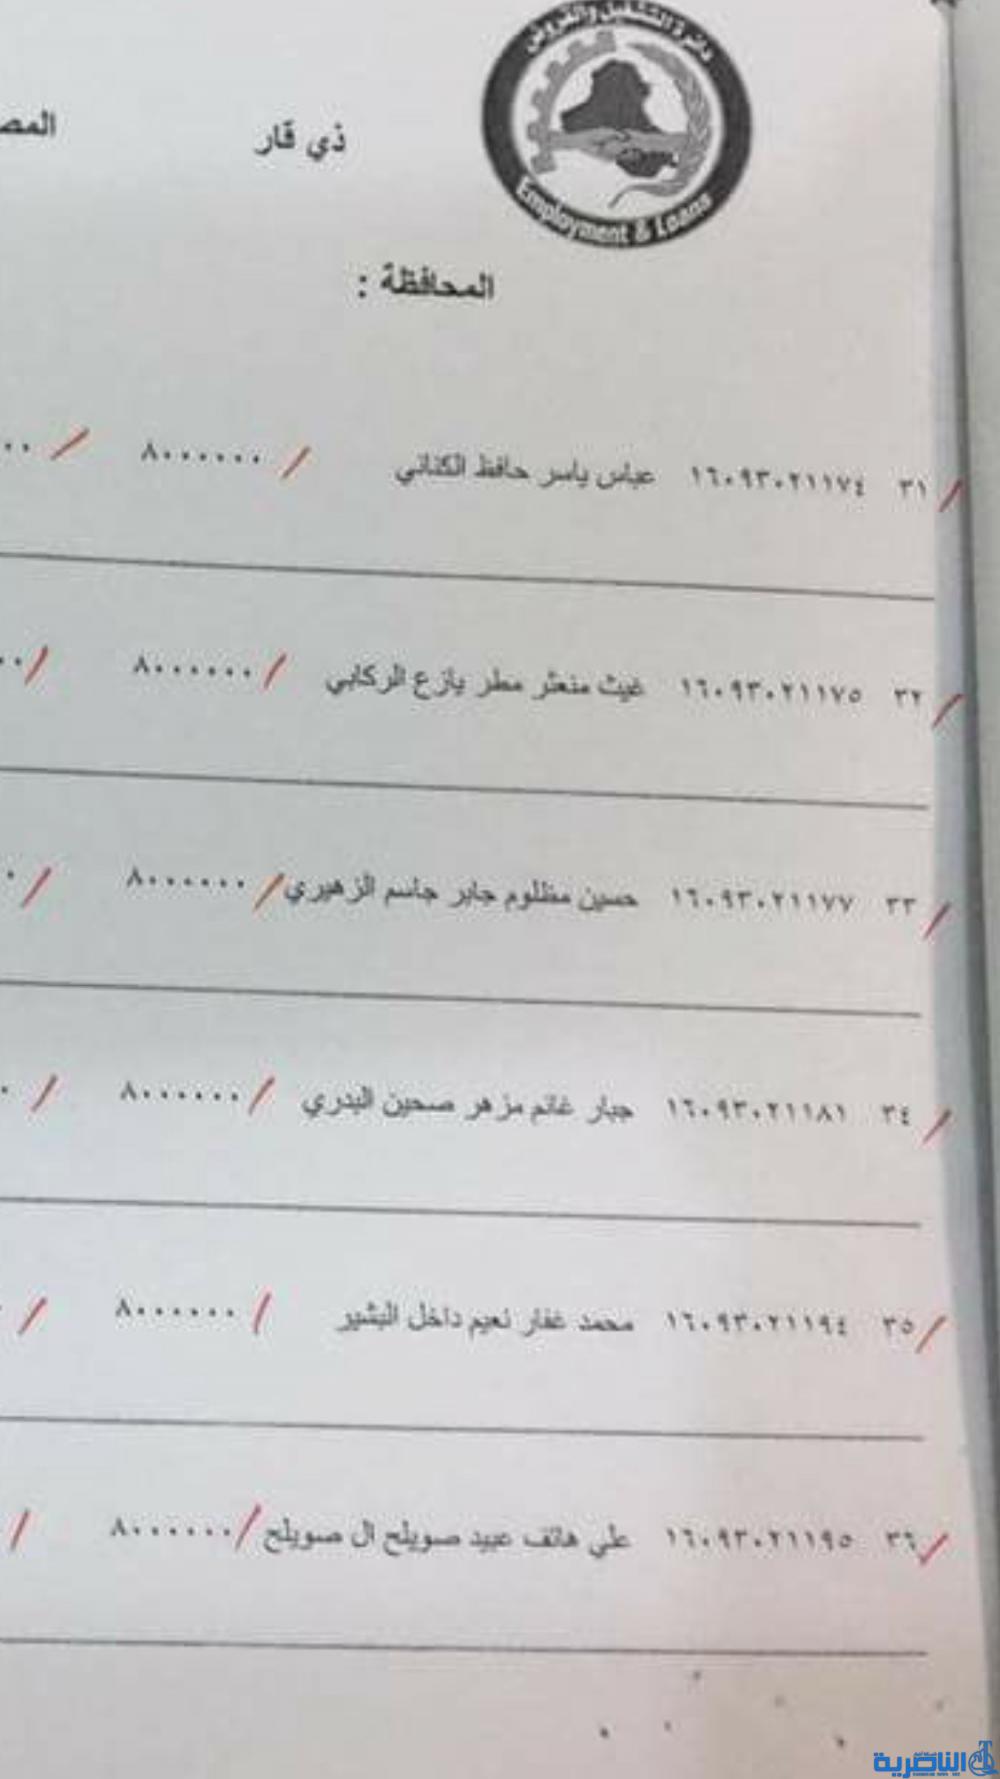 دائرة التشغيل والقروض
Employment & Loans
ذي قار
المص
المحافظة :
٣١ ١٦٠٩٣٠٢١١٧٤ عباس ياسر حافظ الكناني ٨٠٠٠٠٠٠
٣٢ ١٦٠٩٣٠٢١١٧٥ غيث منعثر مطر يازع الركابي ٨٠٠٠٠٠٠
٣٣ ١٦٠٩٣٠٢١١٧٧ حسين مظلوم جابر جاسم الزهيري ٨٠٠٠٠٠٠
٣٤ ١٦٠٩٣٠٢١١٨١ جبار غانم مزهر صحين البدري ٨٠٠٠٠٠٠
٣٥ ١٦٠٩٣٠٢١١٩٤ محمد غفار نعيم داخل البشير ٨٠٠٠٠٠٠
٣٦ ١٦٠٩٣٠٢١١٩٥ علي هاتف عبيد صويلح ال صويلح ٨٠٠٠٠٠٠
الناصرية